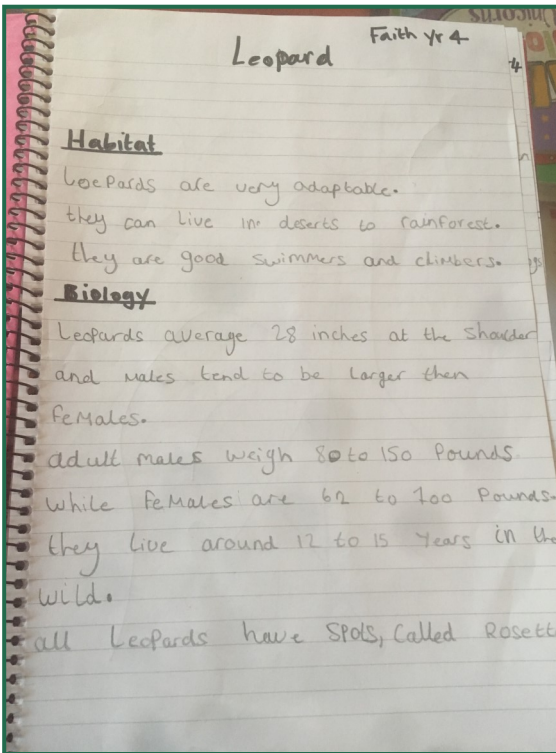 Faith yr 4
Leopard
4
Habitat
Loepards are very adaptable.
they can Live in deserts to rainforest.
they are good swimmers and climbers.
Biology
Leopards average 28 inches at the Shoulder
and Males tend to be Larger then
feMales.
adult males weigh 80 to 150 Pounds
while feMales are 62 to 100 Pounds.
they live around 12 to 15 Years in the
wild.
all Leopards have SPots, Called Rosett